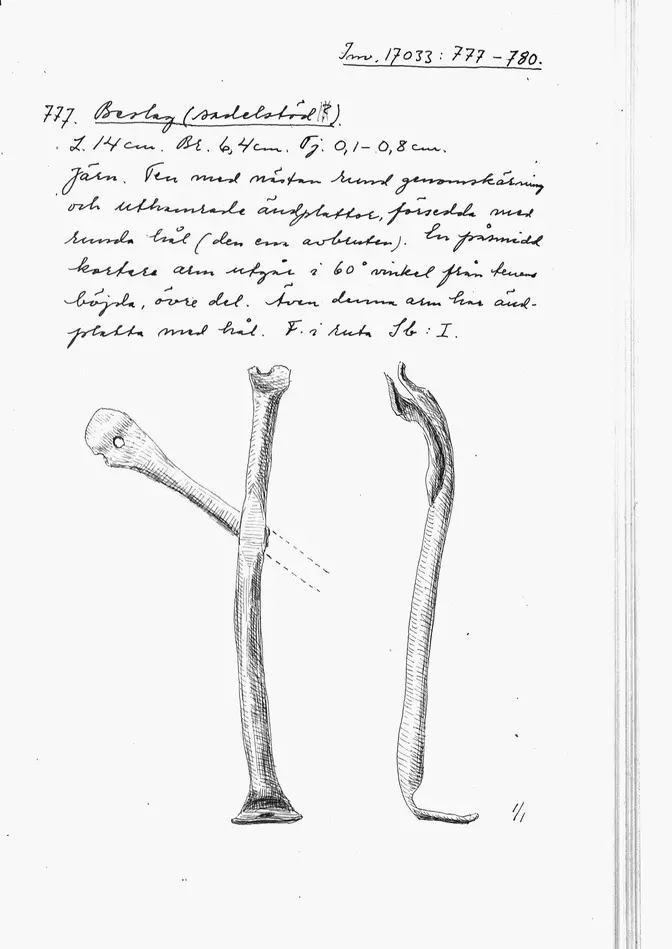 Inv. 17033: 777 – 780.
777. Beslag (sadelstöd ?).
L. 14 cm. Br. 6,4 cm. Tj. 0,1 – 0,8 cm.
Järn. Ten med nästan rund genomskärning
och uthamrade ändplattor, försedda med
runda hål (den ena avbruten). En påsmidd
kortare arm utgår i 60° vinkel från tenens
böjda, övre del. Även denna arm har änd-
platta med hål. F. i ruta Sb : I.
1/1